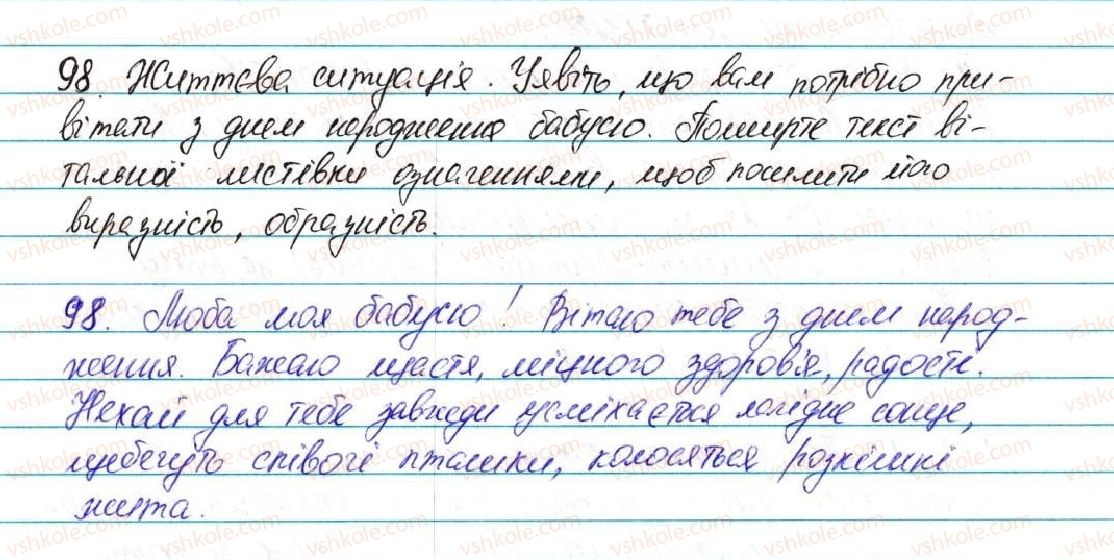 98. Життєва ситуація. Уявіть, що вам потрібно при-
вітати з днем народження бабусю. Поширте текст ві-
тальної листівки означеннями, щоб посилити його
виразність, образність.
98. Люба моя бабусю! Вітаю тебе з днем народ-
ження. Бажаю щастя, міцного здоров'я, радості.
Нехай для тебе завжди усміхається лагідне сонце,
щебечуть співочі пташки, колосяться розкішні
жита.